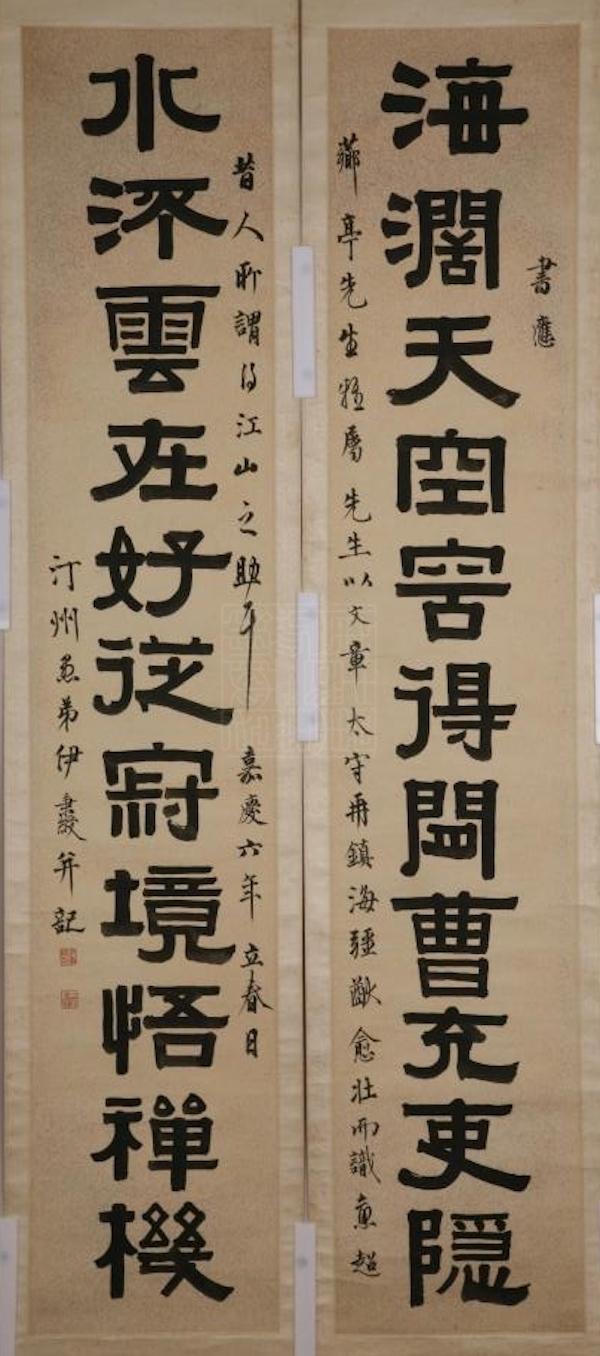 書應
海濶天空容得閒曹充吏隱
薌亭先生雅屬先生以文章太守再鎮海疆猷愈壯而識愈超
昔人所謂得江山之助乎嘉慶六年立春日
水流雲在好從寂境悟禪機
汀州愚弟伊秉綬并記